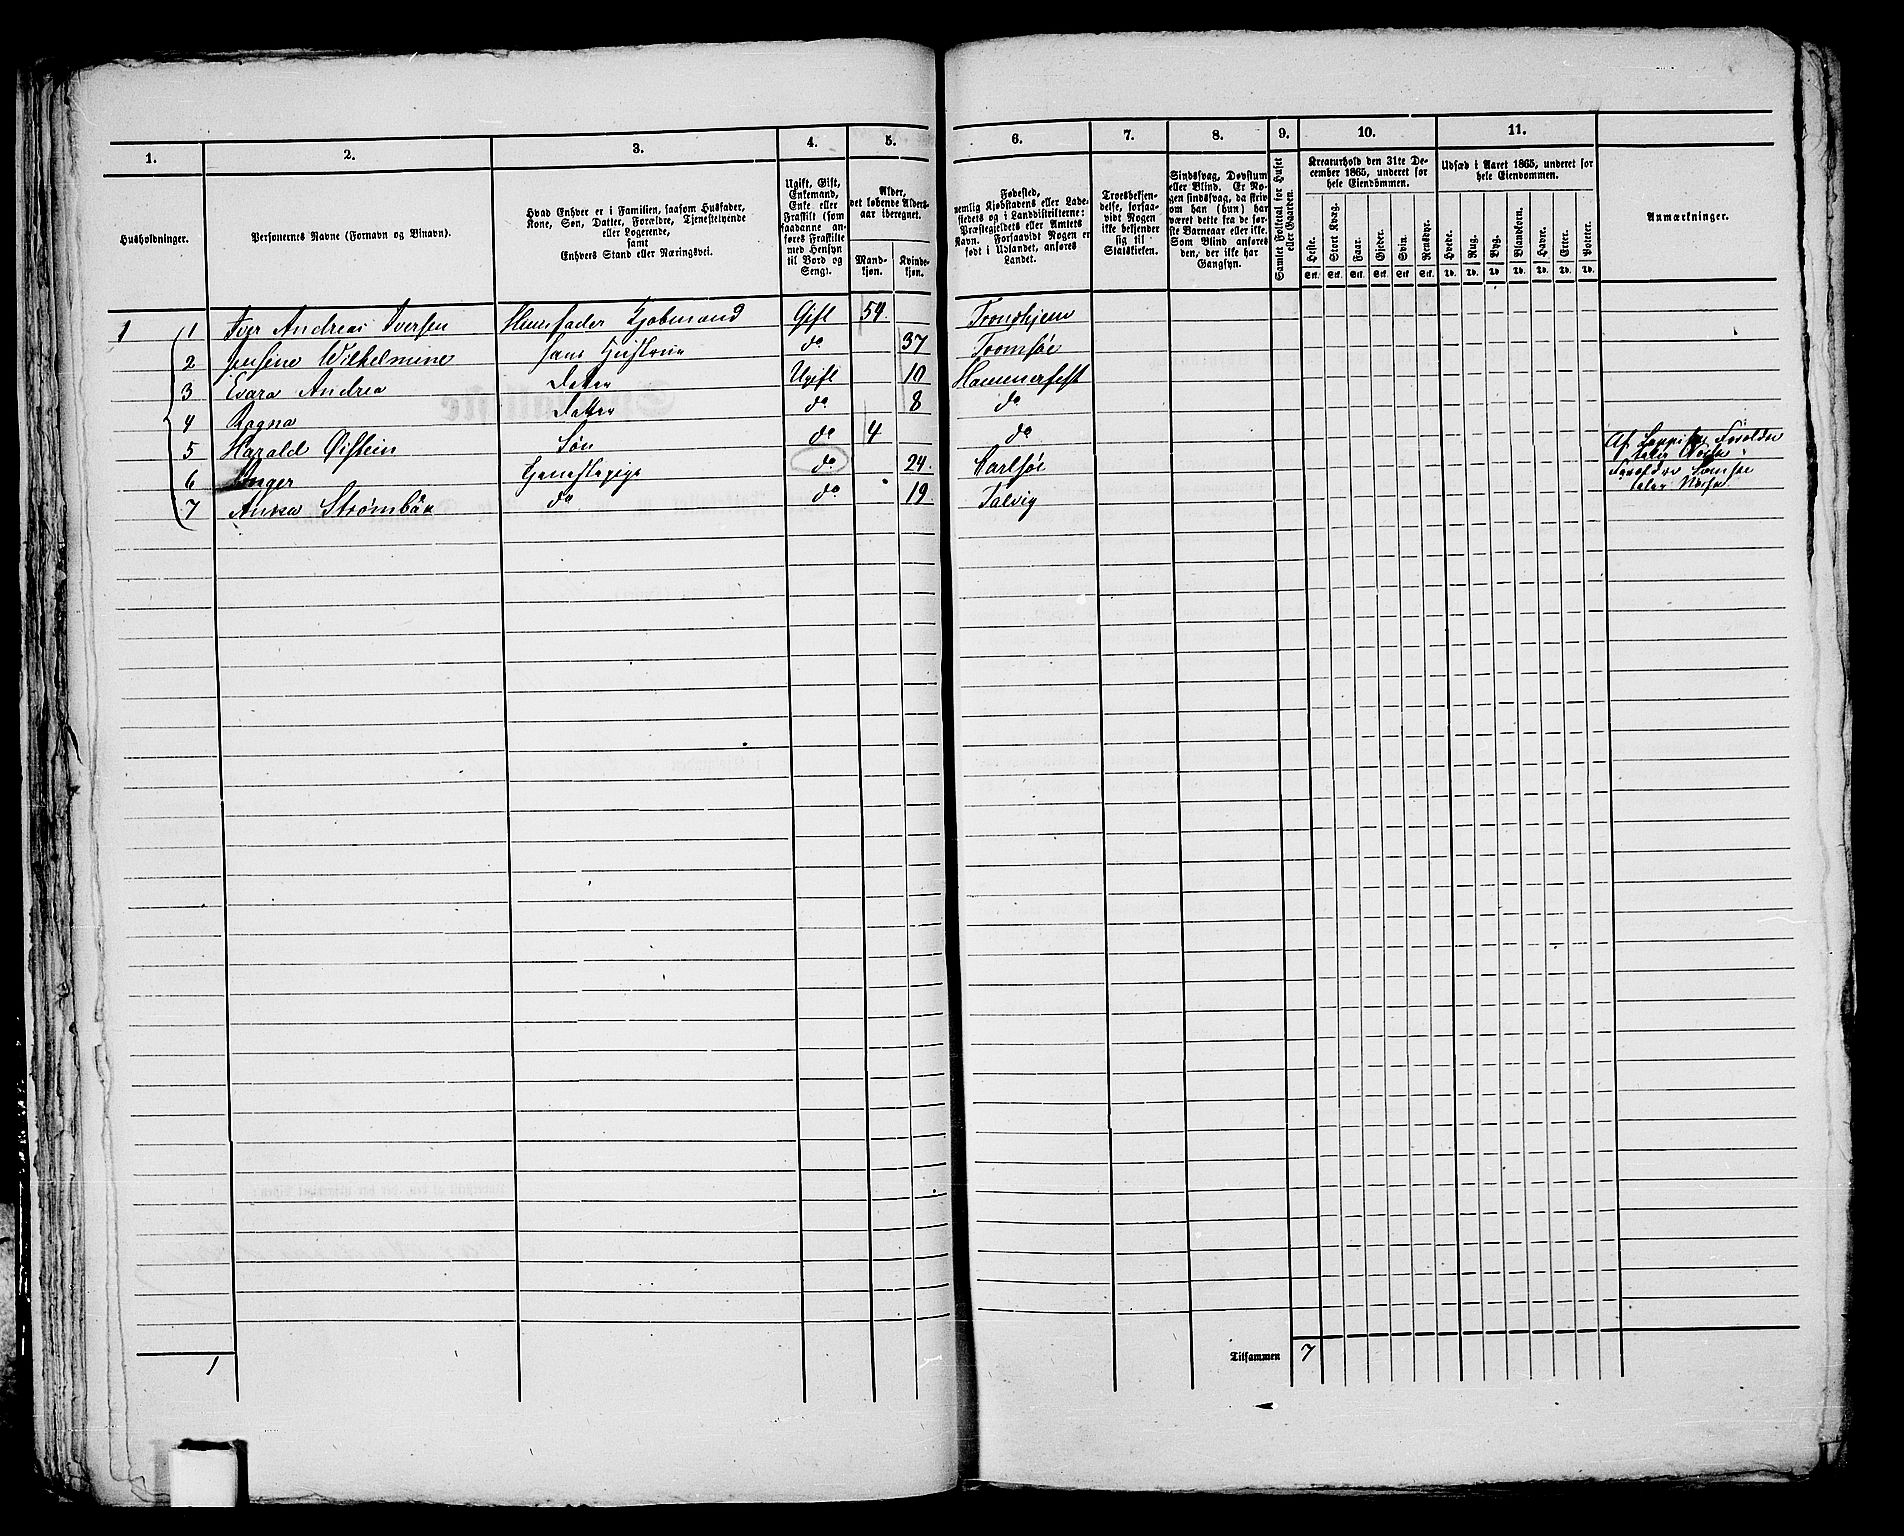 1. 2. 3. 4. 5. 6. 7. 8. 9. 10. 11.
Husholdninger.
Personernes Navne (Fornavn og Binavn).
Hvad Enhver er i Familien, saasom Husfader,
Kone, Søn, Datter, Forældre, Tjenestetyende
eller Logerende,
samt
Enhvers Stand eller Næringsvei.
Ugift, Gift,
Enkemand,
Enke eller
Fraskilt (som
saadanne an-
føres Fraskilte
med Hensyn
til Bord og
Seng).
Alder,
det løbende Alders-
aar iberegnet.
Mand-
kjøn.
Kvinde-
kjøn.
Fødested,
nemlig Kjøbstadens eller Lade-
stedets og i Landdistrikterne:
Præstegjeldets eller Amtets
Navn. Forsaavidt Nogen er
født i Udlandet, anføres
Landet.
Troesbekjen-
delse, forsaa-
vidt Nogen
ikke bekjender
sig til
Statskirken.
Sindssvag, Døvstum
eller Blind. Er No-
gen sindssvag, da skriv
om han (hun) har
været dette fra de før-
ste Barneaar eller ikke.
Som Blind anføres
den, der ikke har
Gangsyn.
Samlet Folketal for Huset
eller Gaarden.
Kreaturhold den 31te De-
cember 1865, underet for
hele Eiendommen.
Heste. Stort Kvæg. Faar. Gjeder. Svin. Rensdyr.
Stk. Stk. Stk. Stk. Stk. Stk.
Udsæd i Aaret 1865, underet for
hele Eiendommen.
Hvede. Rug. Byg. Blandkorn. Havre. Erter. Poteter.
Td. Td. Td. Td. Td. Td. Td.
Anmærkninger.
1 1 Iver Andreas Iversen Huusfader Kjøbmand Gift 54. Trondhjem
2 Jensine Wilhelmine hans Hustrue do 37 Tromsøe
3 Evara Andrea Datter Ugift 10 Hammerfest
4 Ragna Datter do 8 do
5 Harald Øistein Søn do 4 do
6 Inger Tjenestepige do 24. Karlsøe Af Forældre
taler Norsk
7 Anna Strømbæk do do 19 Talvig Forældre
taler Norsk
1
Tilsammen 7